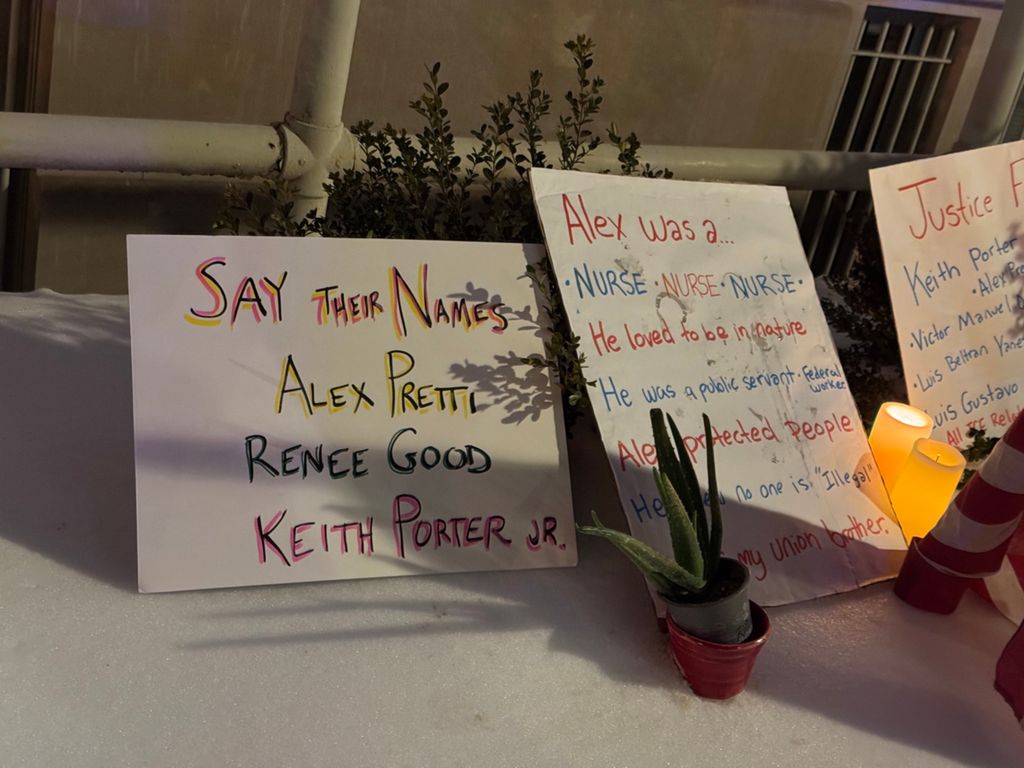 SAY THEIR NAMES
ALEX PRETTI
RENEE GOOD
KEITH PORTER JR.
Alex was a...
·NURSE·NURSE·NURSE·
He loved to be in nature
He was a public servant·Federal worker
Alex protected people
He no one is "Illegal"
my union brother.
Justice F
Keith Porter
·Alex Pre
·Victor Manuel
·Luis Beltran Yane
Luis Gustavo
All ICE Rela